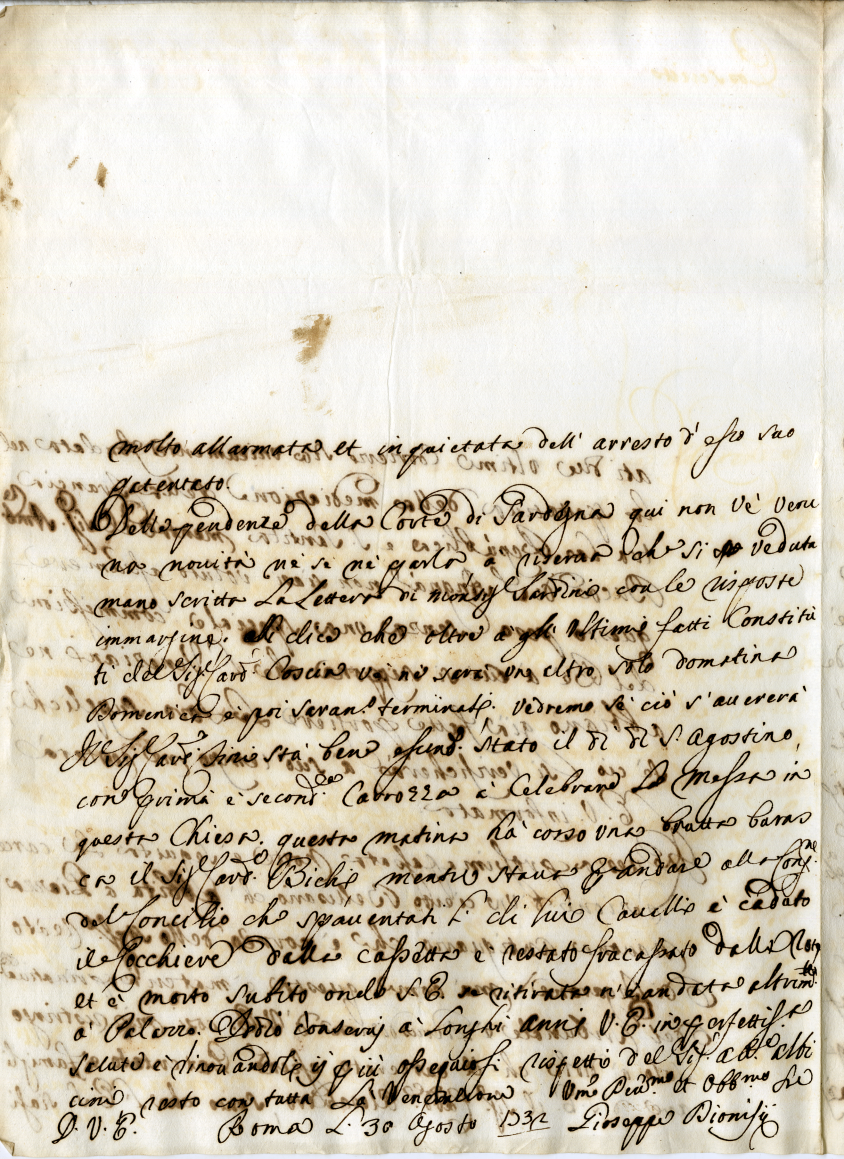 molto allarmata et inquietata dell' arresto d' esso suo
patentato.
Delle pendenze della Corte di Sardegna qui non v'è veru
na novità nè se nè parla a riserva che si è veduta
mano scritta La Lettera di monsig.r Sardini con le risposte
immargine. Si dice che oltre a gli ultimi fatti Constitu
ti del Sig. Card. Coscia ve ne sarà un altro solo domatina
Domenica e poi saran.o terminati. vedremo se ciò s' avererà
Il Sig. Card. stà bene essend. stato il dì di S. Agostino,
con prima e second. Carrozza a Celebrare La Messa in
questa Chiesa. questa matina hà corso una brutta buras
ca il Sig. Card. Bichi mentre stava p andare alla Cong.ne
del Concilio che spaventati li di lui Cavalli è caduto
il Cocchiere dalla cassetta e restato fracassato dalle
et è morto subito onde S. E. ritirata n'è andata altrim.
a Palazzo. Iddio conservi a Longhi anni V. E. in perfettiss.a
salute e rinovandole i più ossequiosi rispetti del Sig. ab.e Albi
cini resto con tutta La Veneratione Um.o Dev.mo et Obb.mo Se
D. V. E. Roma L. 30 Agosto 1732 Gioseppe Dionisij